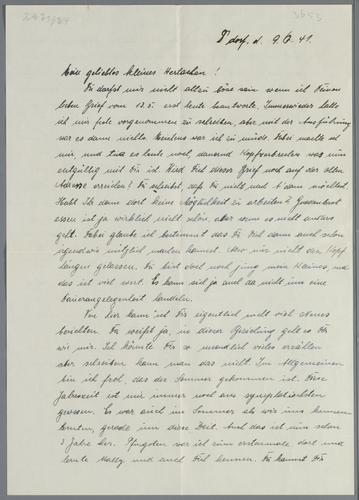 3653
D'dorf, d. 9.6.41.
Mein geliebtes kleines Herlachen!
Du darfst mir nicht allzu böse sein wenn ich Deinen
lieben Brief vom 13.5. erst heute beantworte. Immerwieder hatte
ich mir fest vorgenommen zu schreiben, aber mit der Ausführung
war es dann nichts. Meistens war ich zu müde. Dabei machte ich
mir, und tue es heute noch, dauernd Kopfzerbrechen was nun
entgültig mit Dir ist. Wird Dich dieser Brief noch auf der alten
Adresse erreichen? Du schreibst, daß Du nicht nach A'dam möchtest.
Habt Ihr denn dort keine Möglichkeit zu arbeiten? Gnadenbrot
essen ist ja wirklich nicht schön, aber wenn es nicht anders
geht. Dabei glaube ich bestimmt das Du Dich dann auch schon
irgendwie nützlich machen kannst. Nur nur nicht den Kopf
hängen gelassen. Du bist doch noch jung mein Kleines, und
das ist viel wert. Es kann sich ja auch da nicht um eine
Dauerangelegenheit handeln.
Von hier kann ich Dir eigentlich nicht viel Neues
berichten. Du weißt ja, in dieser Beziehung geht es Dir
wie mir. Ich könnte Dir so manches vieles erzählen
aber schreiben kann man das nicht. Im Allgemeinen
bin ich froh, das der Sommer gekommen ist. Diese
Jahreszeit ist mir immer noch am sympatischsten
gewesen. Es war auch im Sommer als wir uns kennen
lernten, gerade um diese Zeit. Auch das ist nun schon
3 Jahre her. Pfingsten war ich zum erstenmale dort und
lernte Molly und auch Dich kennen. Du kannst Dir